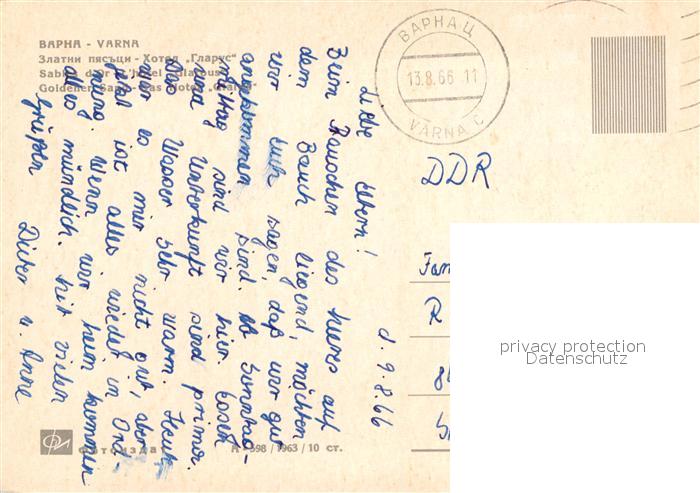 ВАРНА - VARNA
Златни пясъци - Хотел „Гларус"
Goldener
ВАРНА Ц
13.8.66 11
VARNA C
DDR
Fam
R
d. 9.8.66
Liebe Eltern!
Beim Rauschen des Meeres auf
dem Bauch liegend, möchten
wir Euch sagen, daß wir gut
angekommen sind.
mittag sind wir hier. Essen
und Unterkunft sind prima.
Das Wasser sehr warm. Heute
war es mir nicht gut, aber
jetzt ist alles wieder in Ord-
nung. Wenn wir heim kommen
alles mündlich. Mit vielen
Grüßen Dieter u. Anne
Фотоиздат
A - 398 / 1963 / 10 ст.
privacy protection
Datenschutz